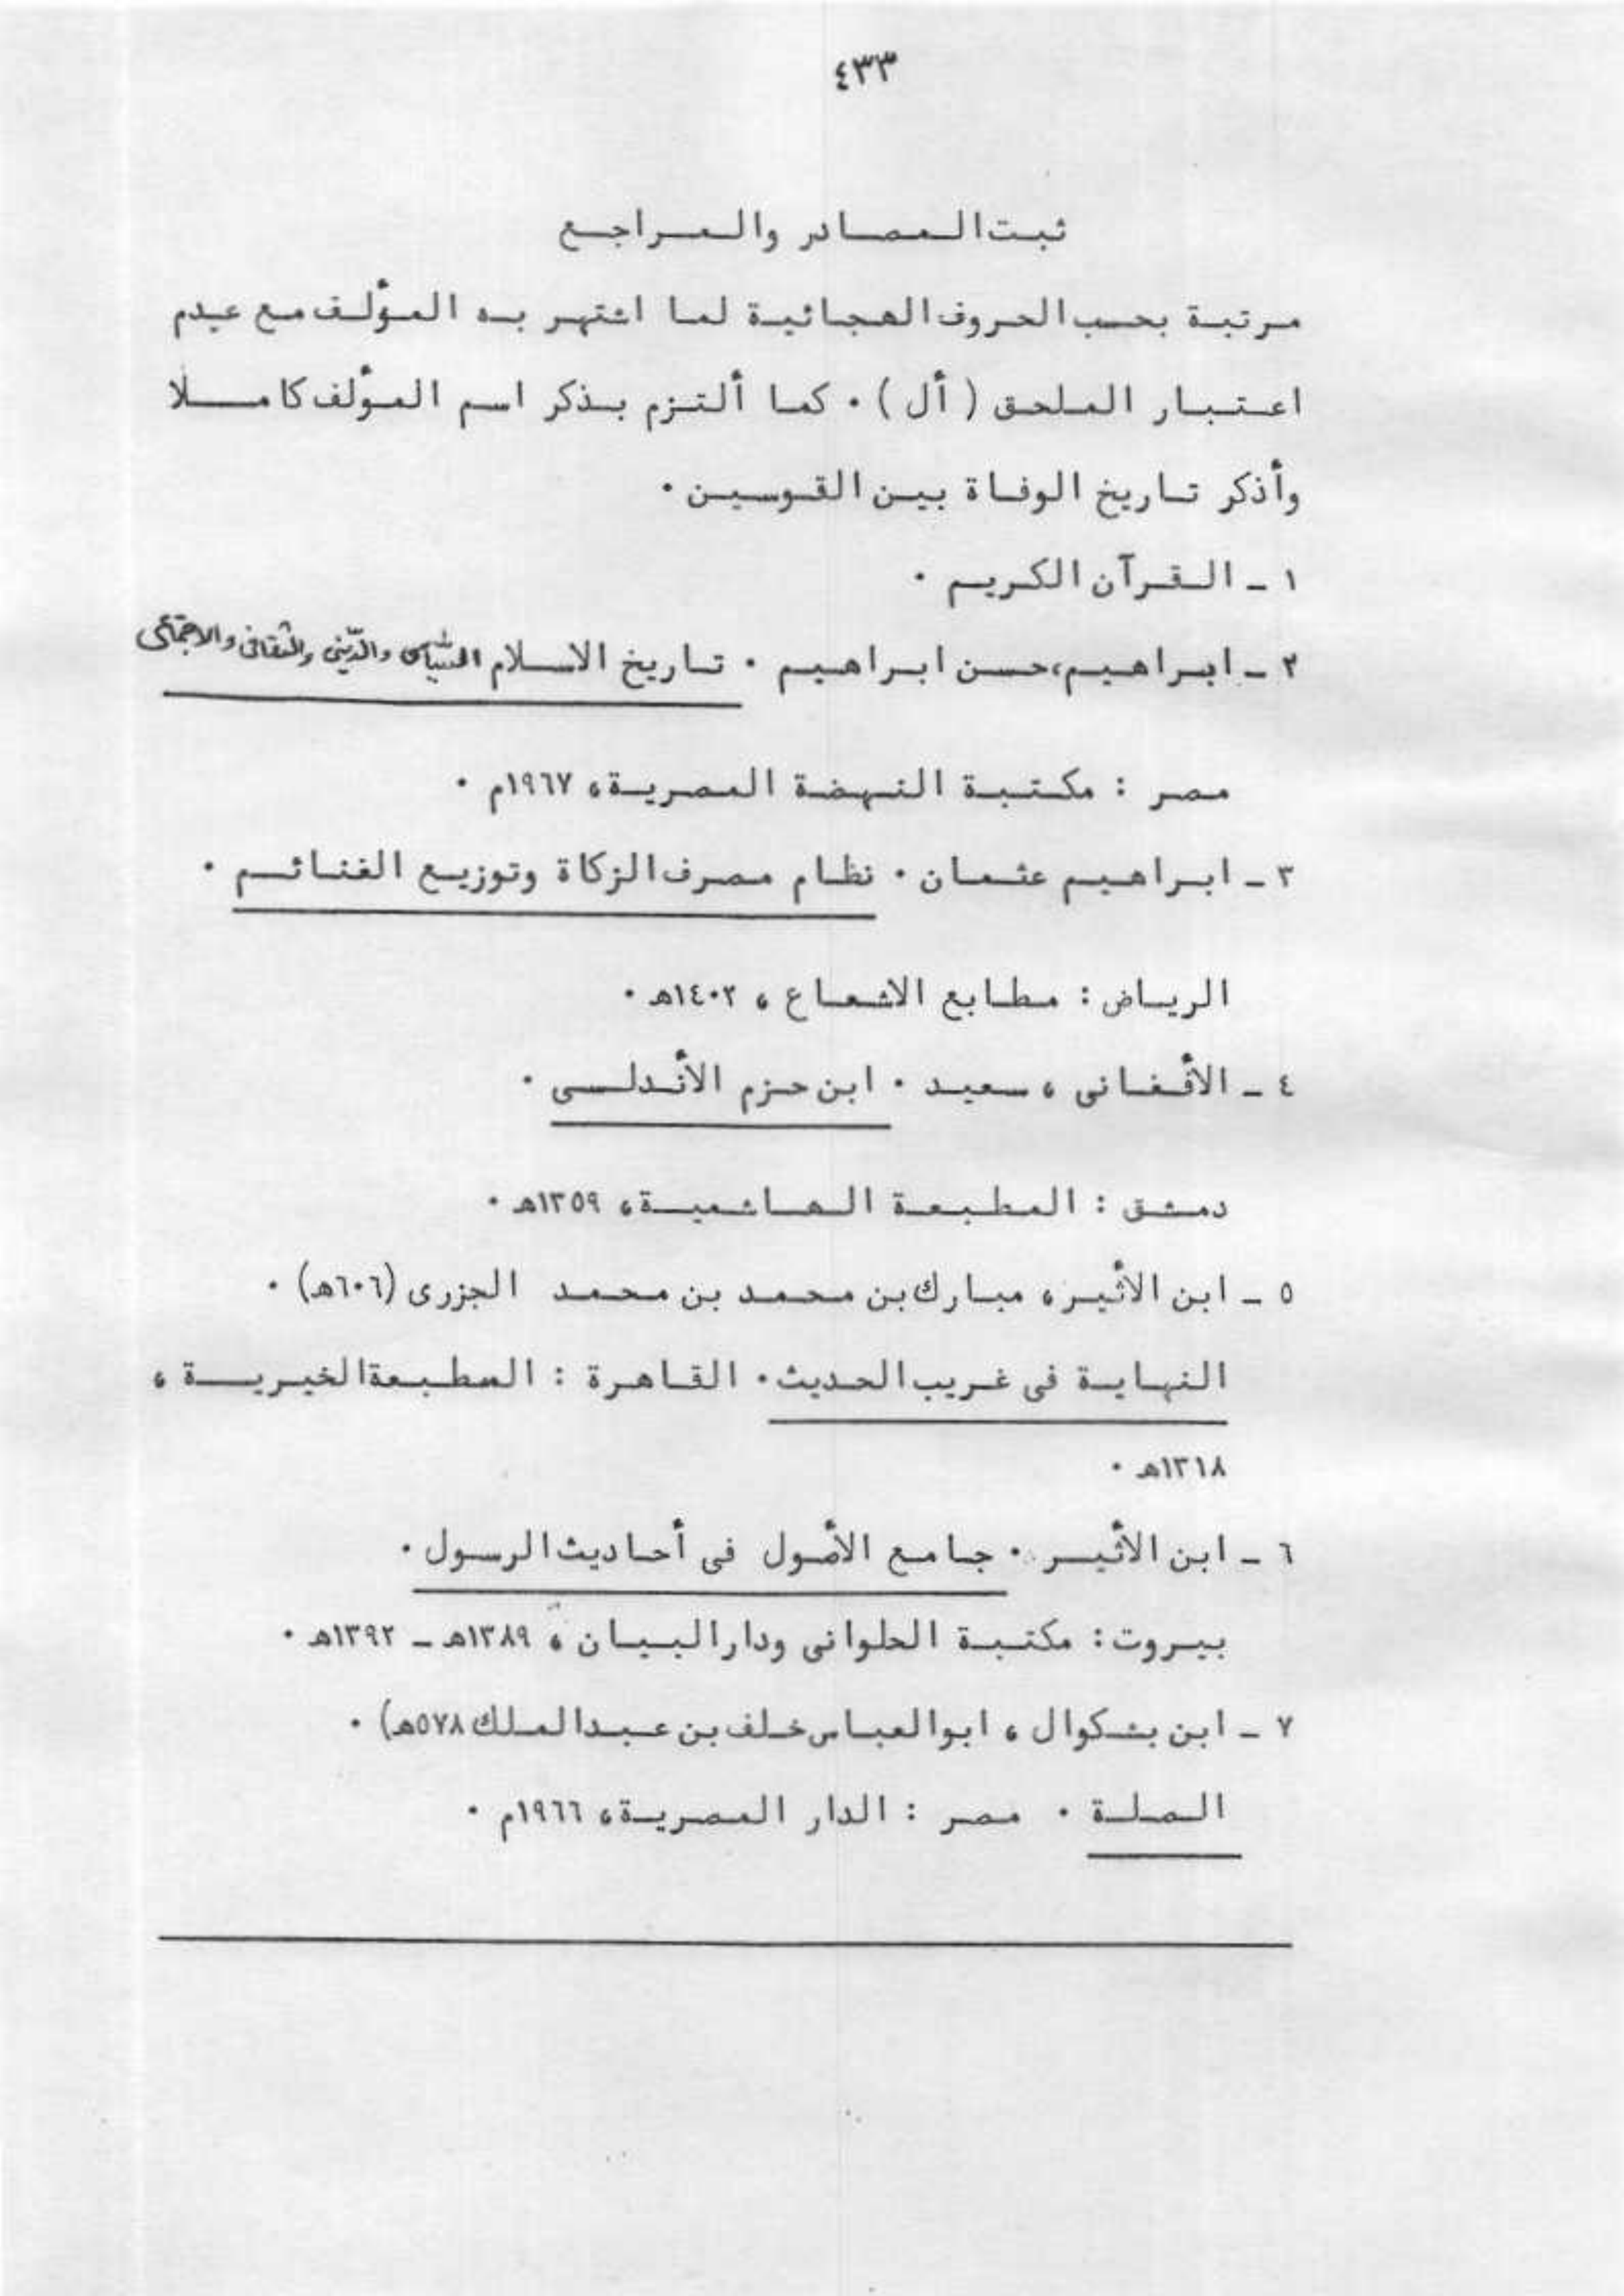 ٤٣٣
ثبت المصادر والمراجع
مرتبة بحسب الحروف الهجائية لما اشتهر به المؤلف مع عدم
اعتبار الملحق ( أل ) ٠ كما ألتزم بذكر اسم المؤلف كاملا
وأذكر تاريخ الوفاة بين القوسين ٠
١ - القرآن الكريم ٠
٢ - ابراهيم، حسن ابراهيم ٠ تاريخ الاسلام السياسى والدّينى والثقافى والاجتماعى
مصر : مكتبة النهضة المصرية، ١٩٦٧م ٠
٣ - ابراهيم عثمان ٠ نظام مصرف الزكاة وتوزيع الغنائم ٠
الرياض : مطابع الاشعاع ، ١٤٠٢هـ ٠
٤ - الأفغانى ، سعيد ٠ ابن حزم الأندلسى ٠
دمشق : المطبعة الهاشمية، ١٣٥٩هـ ٠
٥ - ابن الأثير، مبارك بن محمد بن محمد الجزرى (٦٠٦هـ) ٠
النهاية فى غريب الحديث ٠ القاهرة : المطبعة الخيرية ،
١٣١٨هـ ٠
٦ - ابن الأثير ٠ جامع الأصول فى أحاديث الرسول ٠
بيروت : مكتبة الحلوانى ودار البيان ، ١٣٨٩هـ - ١٣٩٢هـ ٠
٧ - ابن بشكوال ، ابو العباس خلف بن عبد الملك ٥٧٨هـ) ٠
الصلة ٠ مصر : الدار المصرية، ١٩٦٦م ٠